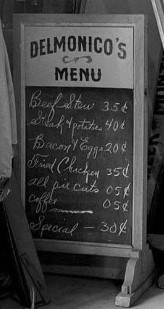 DELMONICO'S
MENU
Beef Stew 35¢
Steak & potatoe 40¢
Bacon & Eggs 20¢
Fried Chicken 35¢
all pie cuts 05¢
coffee 05¢
Special — 30¢